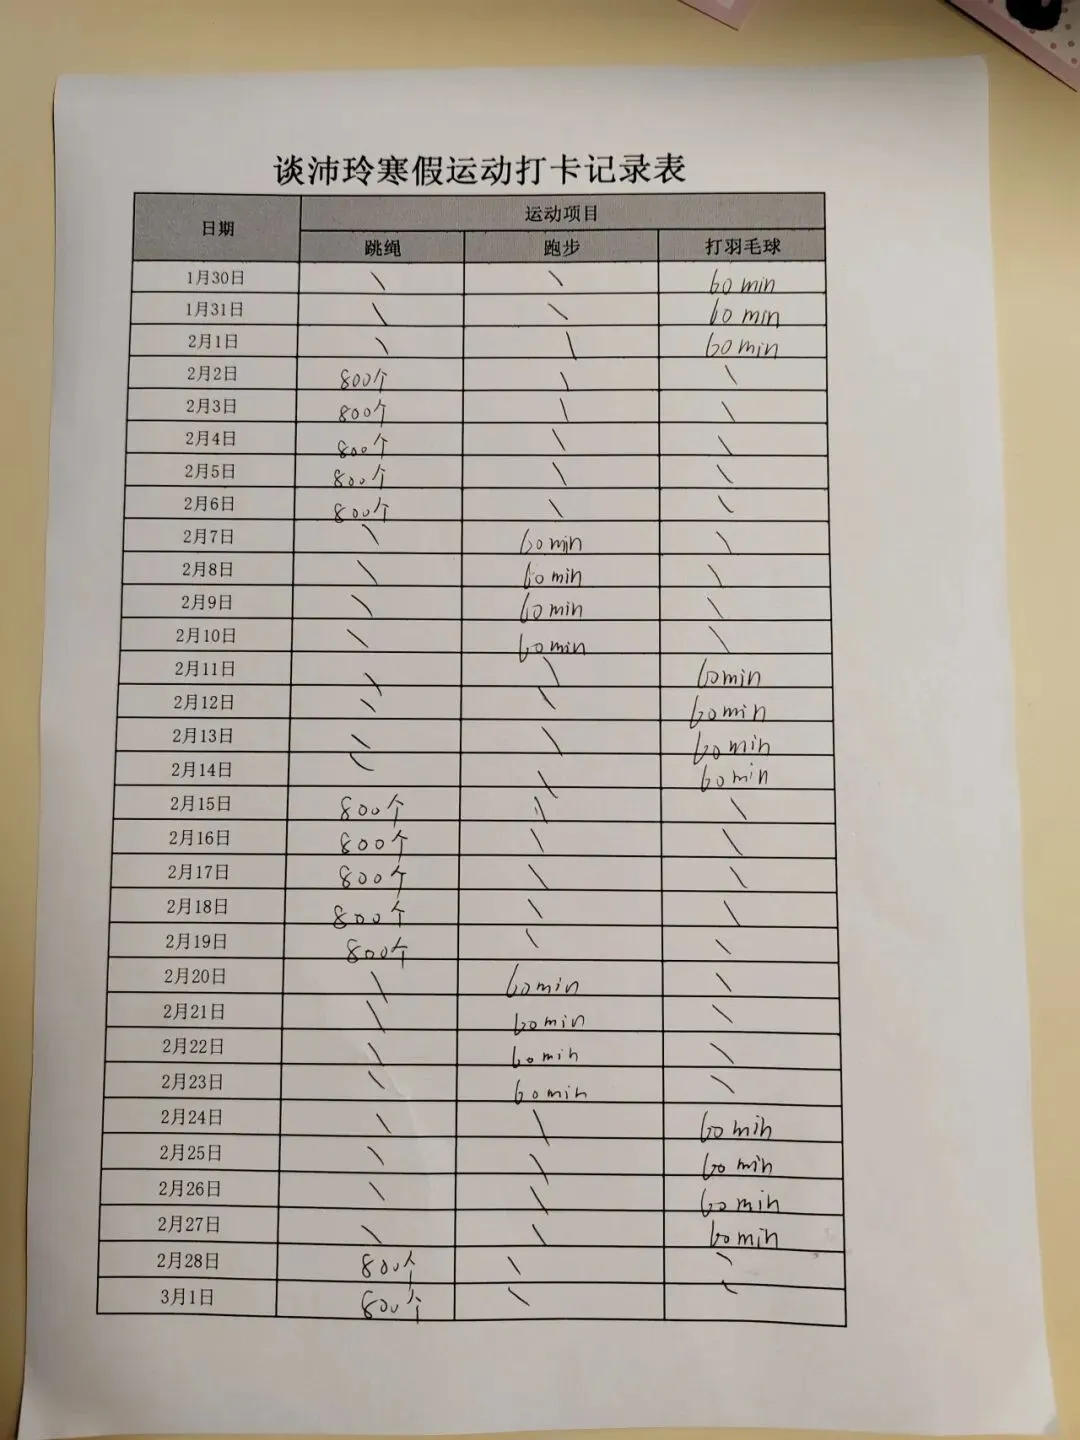 谈沛玲寒假运动打卡记录表
日期 运动项目
跳绳 跑步 打羽毛球
1月30日 \ \ 60 min
1月31日 \ \ 60 min
2月1日 \ \ 60 min
2月2日 800个 \ \
2月3日 800个 \ \
2月4日 800个 \ \
2月5日 800个 \ \
2月6日 800个 \ \
2月7日 \ 60 min \
2月8日 \ 60 min \
2月9日 \ 60 min \
2月10日 \ 60 min \
2月11日 \ \ 60min
2月12日 \ \ 60 min
2月13日 \ \ 60 min
2月14日 \ \ 60 min
2月15日 800个 \ \
2月16日 800个 \ \
2月17日 800个 \ \
2月18日 800个 \ \
2月19日 800个 \ \
2月20日 \ 60min \
2月21日 \ 60 min \
2月22日 \ 60 min \
2月23日 \ 60 min \
2月24日 \ \ 60 min
2月25日 \ \ 60 min
2月26日 \ \ 60 min
2月27日 \ \ 60 min
2月28日 800个 \ \
3月1日 800个 \ \